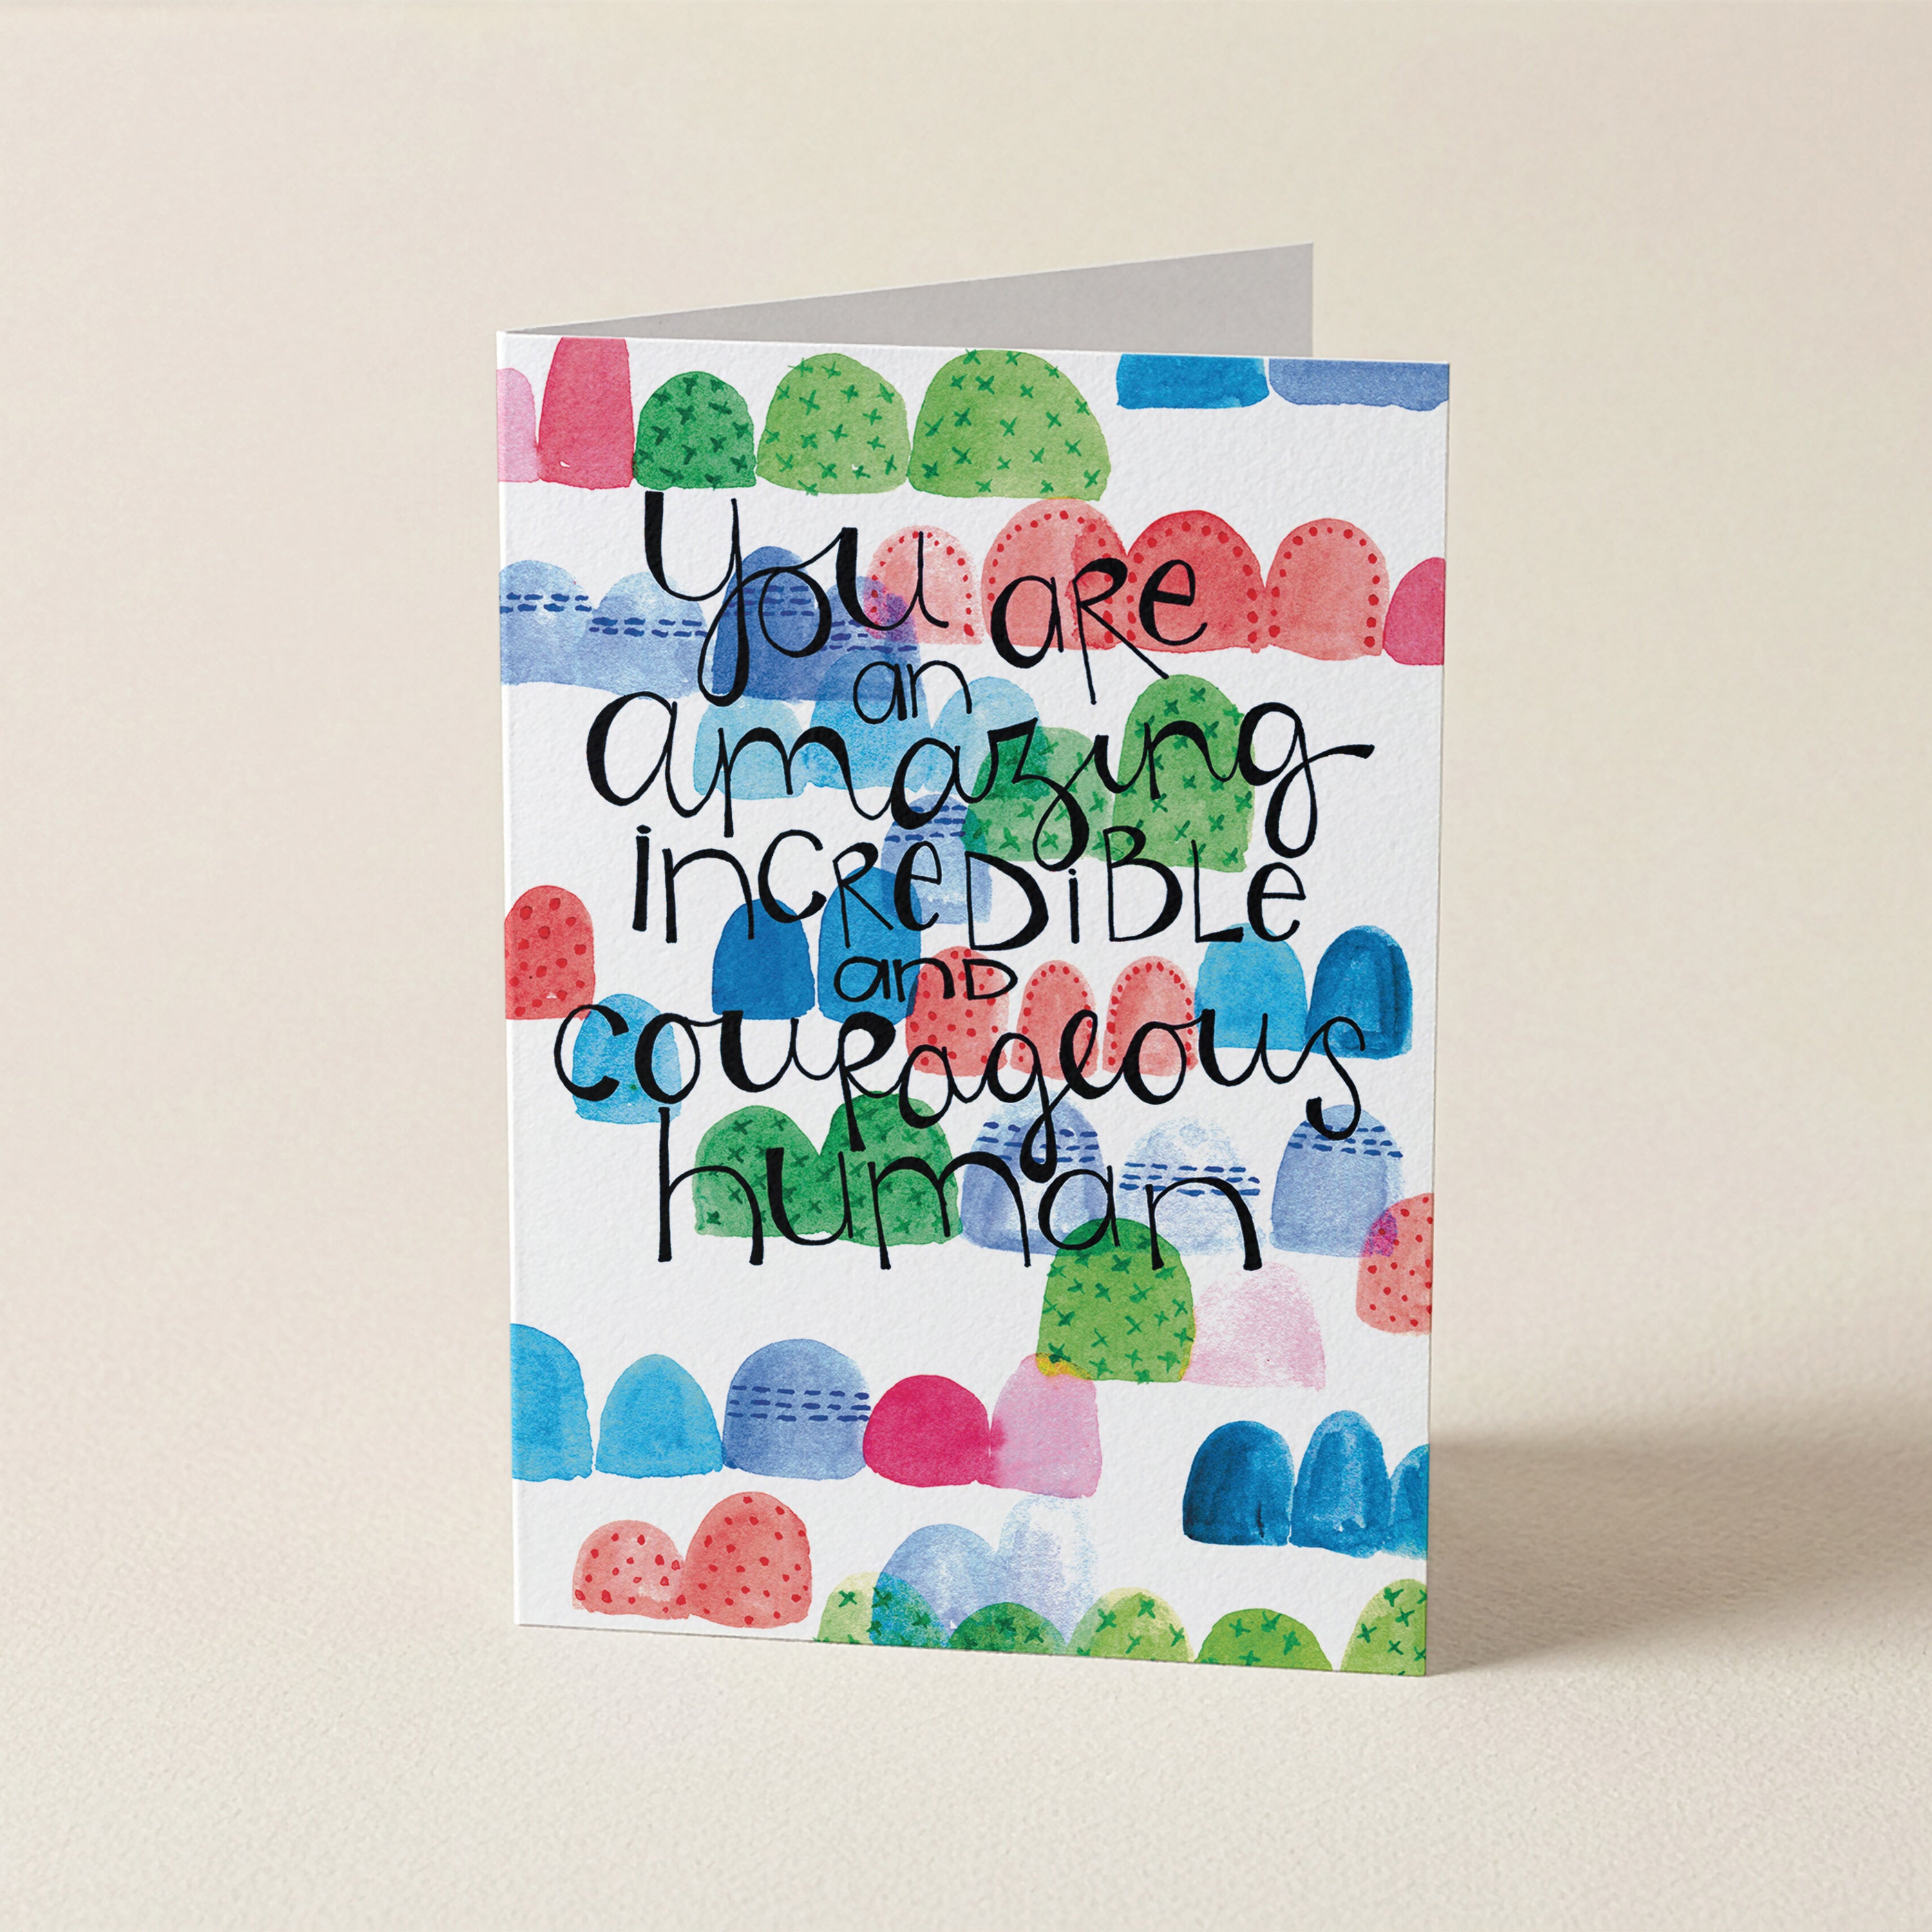 you are
an
amazing
incREDiBLe
anD
couRageous
human